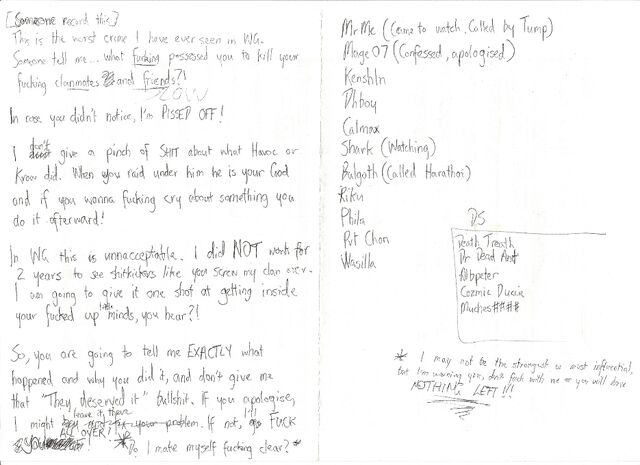 [Someone record this]
This is the worst crime I have ever seen in WG.
Someone tell me... what fucking possessed you to kill your
fucking clanmates and friends?!
SLOW
In case you didn't notice, I'm PISSED OFF!
I don't give a pinch of SHIT about what Havoc or
Krow did. When you raid under him he is your God
and if you wanna fucking cry about something you
do it afterward!
In WG this is unnacceptable. I did NOT work for
2 years to see shitkickers like you screw my clan over.
I am going to give it one shot at getting inside
your fucked up little minds, you hear?!
So, you are going to tell me EXACTLY what
happened and why you did it, and don't give me
that "They deserved it" bullshit. If you apologise,
I might leave it there. If not, I'll FUCK
YOU ALL OVER! *
Do I make myself fucking clear? *
Mr Me (Came to watch, Called by Tump)
Mage 07 (Confessed, apologised)
Kenshln
Dhboy
Calmax
Shark (Watching)
Balgoth (Called Harathoi)
Riku
Phila
Pvt Chon
Wasilla
DS
Death Treath
Dr Dead Ant
Albpeter
Cozmic Duccie
Muches####
* I may not be the strongest or most influential,
but I'm warning you, don't fuck with me or you will have
NOTHING LEFT!!!